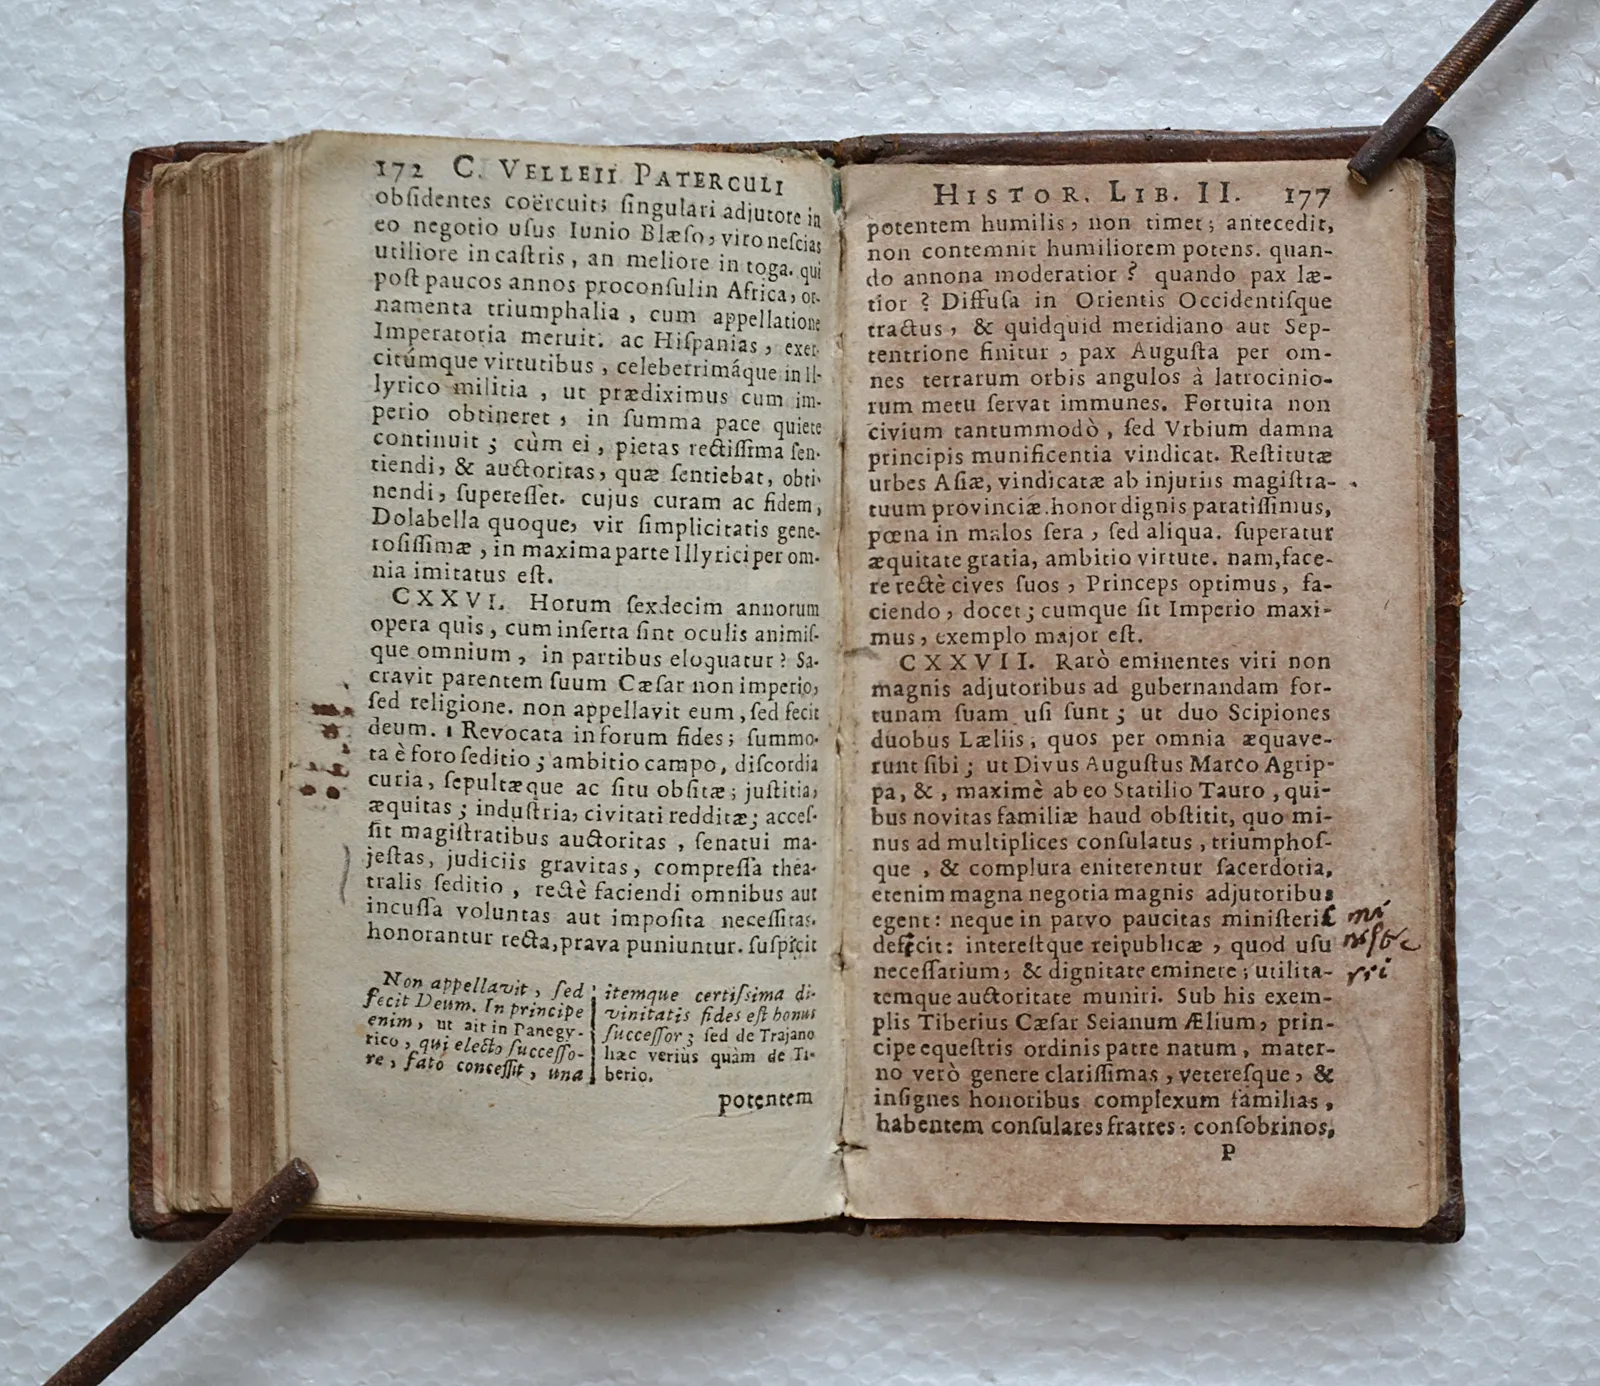 172 C. VELLEII PATERCULI
obſidentes coërcuit; ſingulari adjutore in
eo negotio uſus Iunio Blæſo, viro neſcias
utiliore in caſtris, an meliore in toga. qui
poſt paucos annos proconſul in Africa, or-
namenta triumphalia, cum appellatione
Imperatoria meruit. ac Hiſpanias, exer-
citúmque virtutibus, celeberrimáque in Il-
lyrico militia, ut prædiximus cum im-
perio obtineret, in ſumma pace quiete
continuit; cùm ei, pietas rectiſſima ſen-
tiendi, & auctoritas, quæ ſentiebat, obti-
nendi, ſupereſſet. cujus curam ac fidem,
Dolabella quoque, vir ſimplicitatis gene-
roſiſſimæ, in maxima parte Illyrici per om-
nia imitatus eſt.
CXXVI. Horum ſexdecim annorum
opera quis, cum inſerta ſint oculis animiſ-
que omnium, in partibus eloquatur? Sa-
cravit parentem ſuum Cæſar non imperio,
ſed religione. non appellavit eum, ſed fecit
deum. 1 Revocata in forum fides; ſummo-
ta è foro ſeditio; ambitio campo, diſcordia
curia, ſepultæque ac ſitu obſitæ; juſtitia,
æquitas; induſtria, civitati redditæ; acceſ-
ſit magiſtratibus auctoritas, ſenatui ma-
jeſtas, judiciis gravitas, compreſſa thea-
tralis ſeditio, rectè faciendi omnibus aut
incuſſa voluntas aut impoſita neceſſitas.
honorantur recta, prava puniuntur. ſuſpicit
Non appellavit, ſed
fecit Deum. In principe
enim, ut ait in Panegy-
rico, qui electo ſucceſſo-
re, fato conceſſit, una
itemque certiſsima di-
vinitatis fides eſt bonus
ſucceſſor; ſed de Trajano
hæc veriùs quàm de Ti-
berio.
potentem
HISTOR. LIB. II. 177
potentem humilis, non timet; antecedit,
non contemnit humiliorem potens. quan-
do annona moderatior? quando pax læ-
tior? Diffuſa in Orientis Occidentiſque
tractus, & quidquid meridiano aut Sep-
tentrione finitur, pax Auguſta per om-
nes terrarum orbis angulos à latrocinio-
rum metu ſervat immunes. Fortuita non
civium tantummodò, ſed Vrbium damna
principis munificentia vindicat. Reſtitutæ
urbes Aſiæ, vindicatæ ab injuriis magiſtra-
tuum provinciæ. honor dignis paratiſſimus,
pœna in malos ſera, ſed aliqua. ſuperatur
æquitate gratia, ambitio virtute. nam, face-
re rectè cives ſuos, Princeps optimus, fa-
ciendo, docet; cumque ſit Imperio maxi-
mus, exemplo major eſt.
CXXVII. Rarò eminentes viri non
magnis adjutoribus ad gubernandam for-
tunam ſuam uſi ſunt; ut duo Scipiones
duobus Læliis, quos per omnia æquave-
runt ſibi; ut Divus Auguſtus Marco Agrip-
pa, &, maximè ab eo Statilio Tauro, qui-
bus novitas familiæ haud obſtitit, quo mi-
nus ad multiplices conſulatus, triumphoſ-
que, & complura eniterentur ſacerdotia,
etenim magna negotia magnis adjutoribus
egent: neque in parvo paucitas miniſterii
deficit: intereſtque reipublicæ, quod uſu
neceſſarium, & dignitate eminere; utilita-
temque auctoritate muniri. Sub his exem-
plis Tiberius Cæſar Seianum Ælium, prin-
cipe equeſtris ordinis patre natum, mater-
no verò genere clariſſimas, vetereſque, &
inſignes honoribus complexum familias,
habentem conſulares fratres: conſobrinos,
P
mi